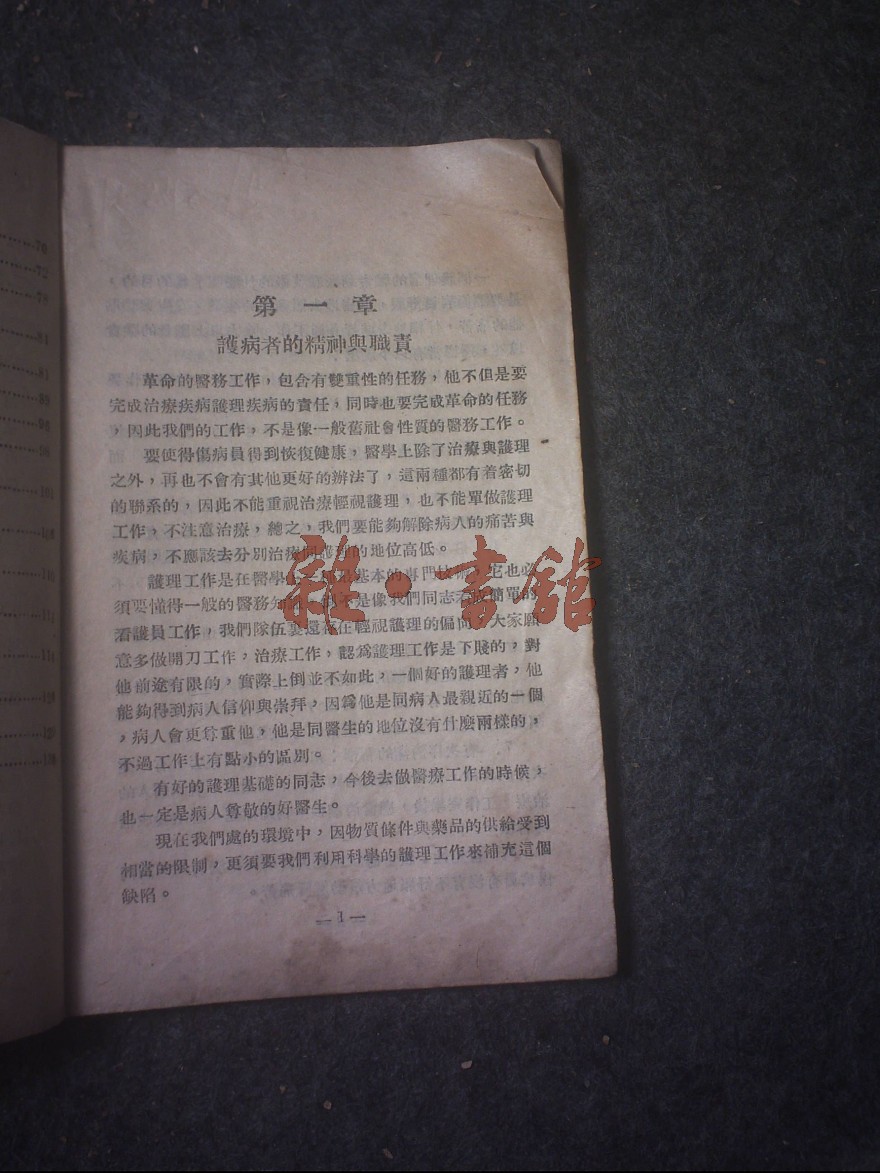 70
72
78
81
第一章
護病者的精神與職責
革命的醫務工作，包含有雙重性的任務，他不但是要
完成治療疾病護理疾病的責任，同時也要完成革命的任務
，因此我們的工作，不是像一般舊社會性質的醫務工作。
要使得傷病員得到恢復健康，醫學上除了治療與護理
之外，再也不會有其他更好的辦法了，這兩種都有着密切
的聯系的，因此不能重視治療輕視護理，也不能單做護理
工作，不注意治療，總之，我們要能夠解除病人的痛苦與
疾病，不應該去分別治療同護理的地位高低。
護理工作是在醫學上基本的專門技術，它也必
須要懂得一般的醫務知識，不是像我們同志看成簡單的
看護員工作，我們隊伍裏還存在輕視護理的偏向，大家願
意多做開刀工作，治療工作，認爲護理工作是下賤的，對
他前途有限的，實際上倒並不如此，一個好的護理者，他
能夠得到病人信仰與崇拜，因爲他是同病人最親近的一個
，病人會更尊重他，他是同醫生的地位沒有什麼兩樣的，
不過工作上有點小的區別。
有好的護理基礎的同志，今後去做醫療工作的時候，
也一定是病人尊敬的好醫生。
現在我們處的環境中，因物質條件與藥品的供給受到
相當的限制，更須要我們利用科學的護理工作來補充這個
缺陷。
— 1 —
雜·書館